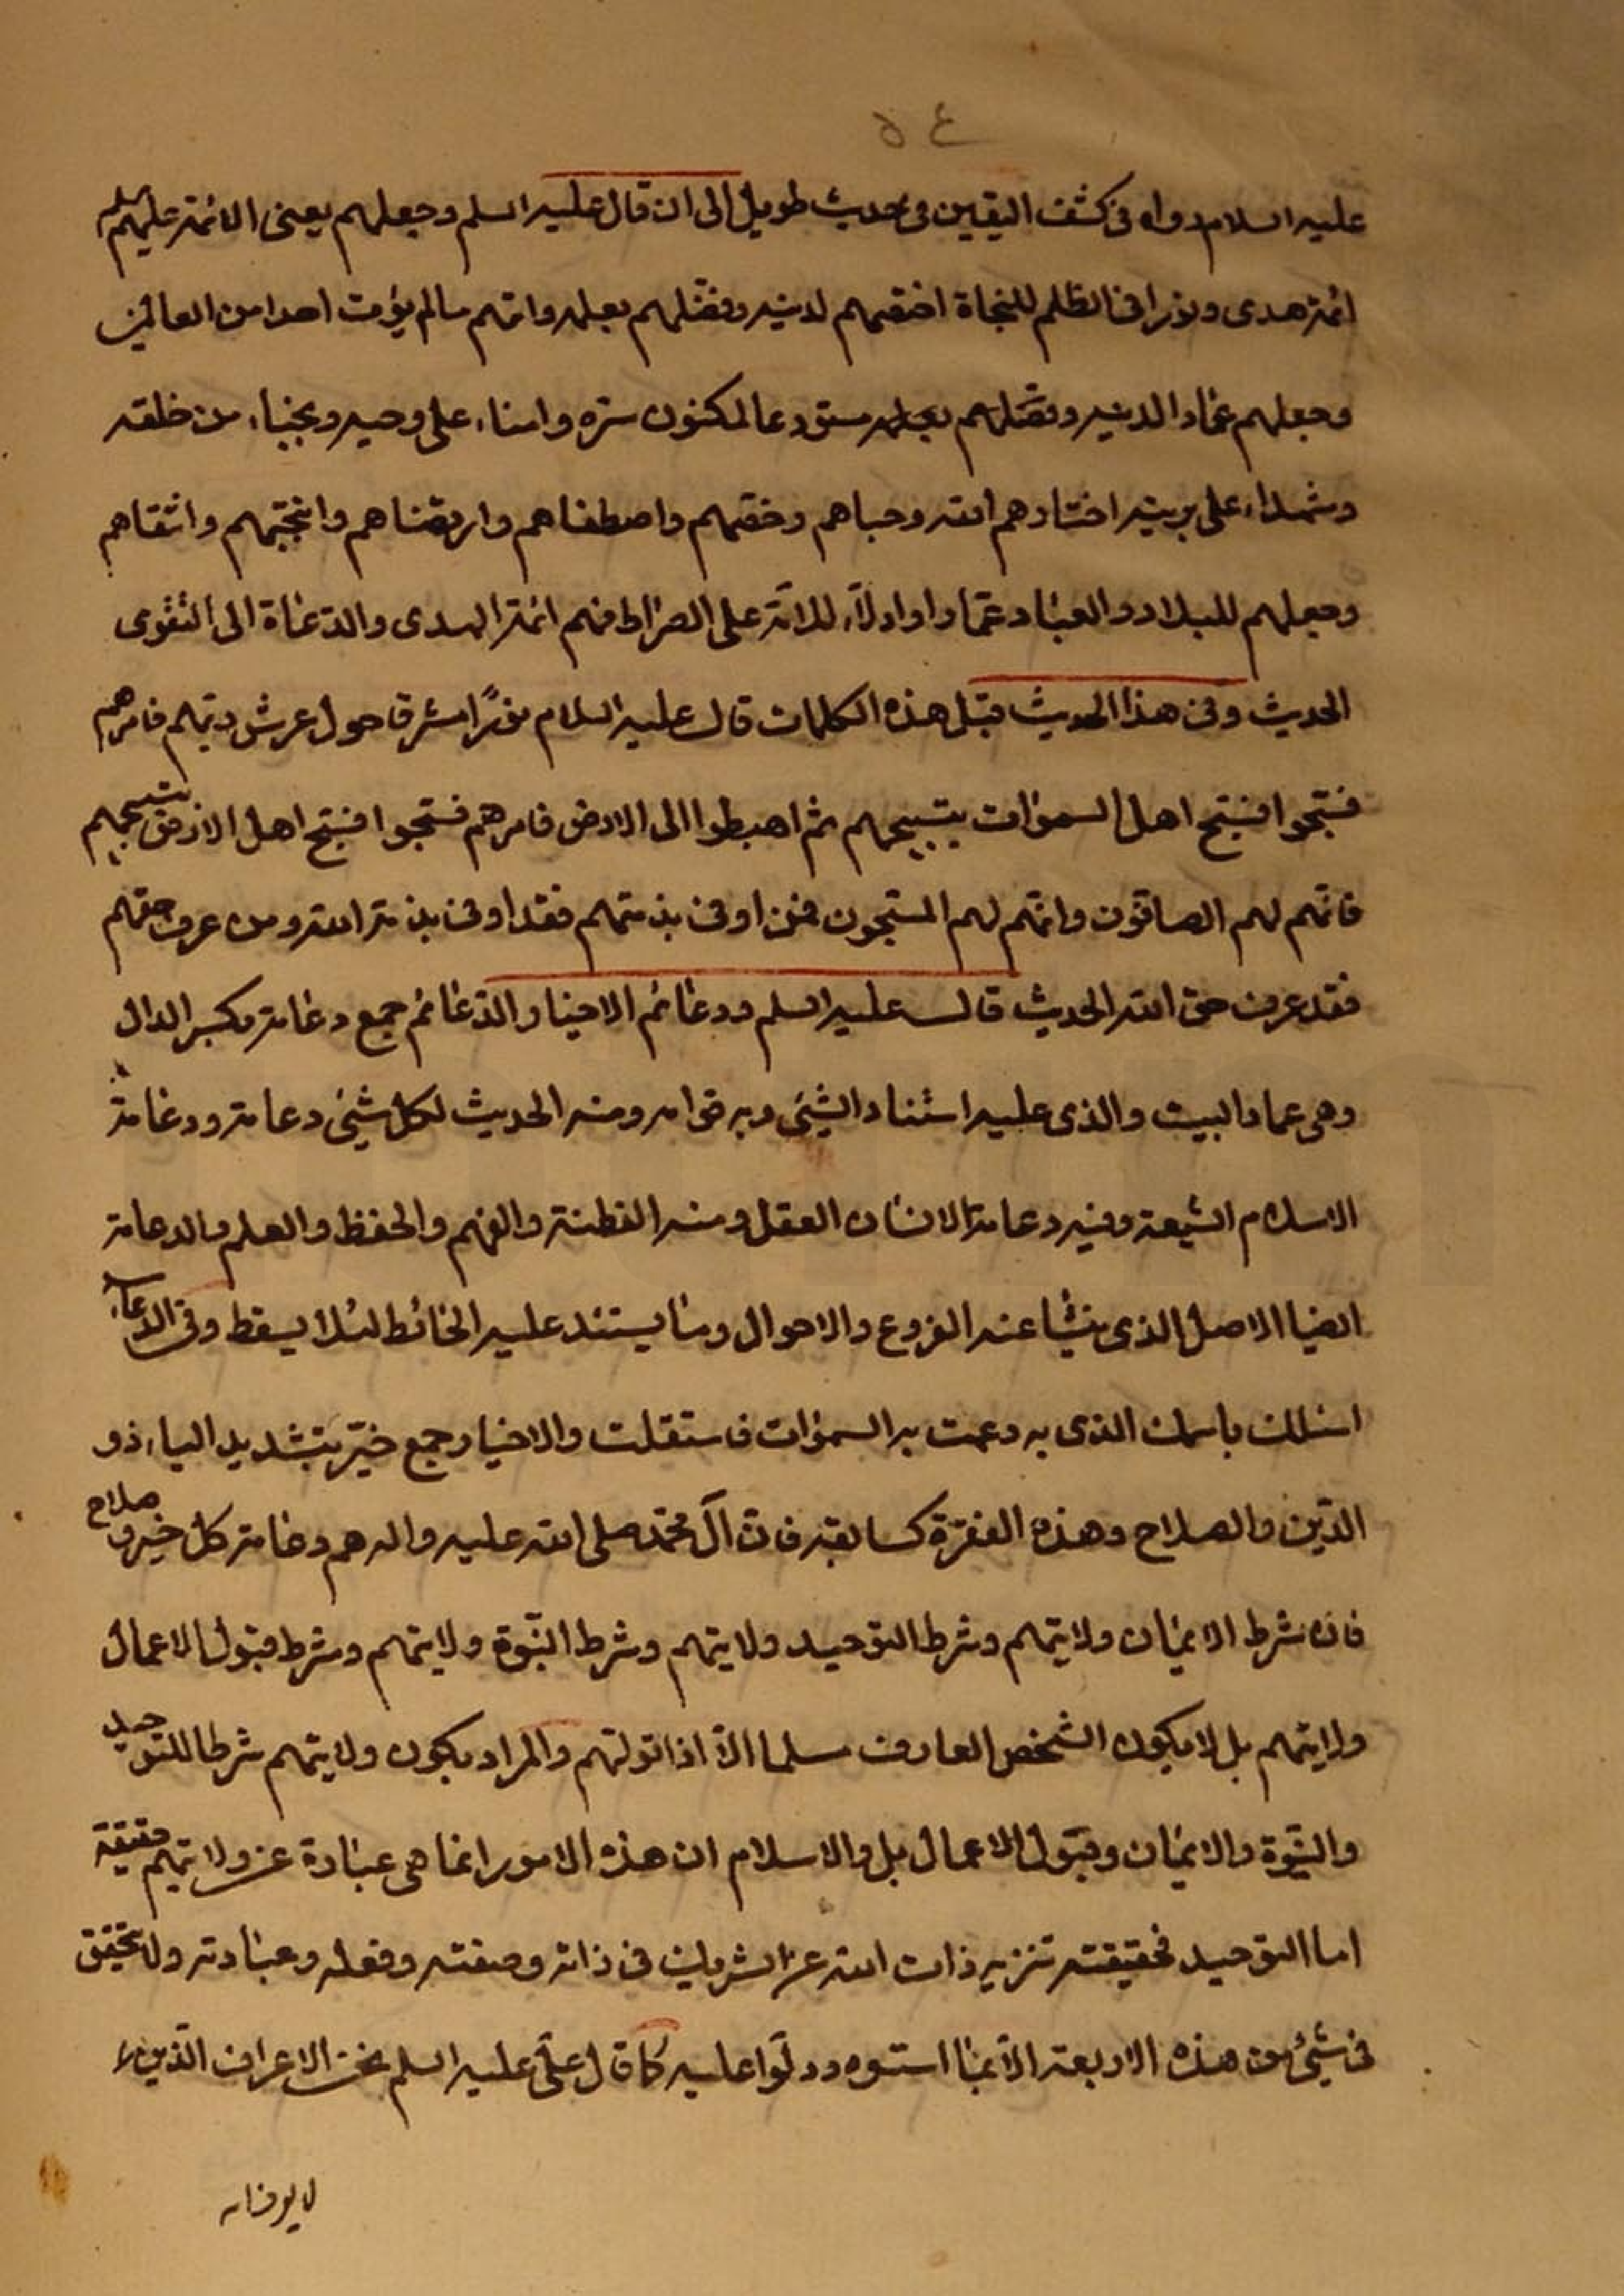 ٥٤
عليه السلام رواه فى كشف اليقين فى حديث طويل الى ان قال عليه السلم وجعلهم يعنى الائمة عليهم السلم
ائمة هدى ونورا فى الظلم للنجاة اختصهم لدينه وفضّلهم بعلمه واتهم مالم يؤت احدا من العالمين
وجعلهم عمادا لدينه وفضلهم بعلمه مستودعا لمكنون سرّه وامناء على وحيه ونجباء من خلقه
وشهداء على بريته اختارهم الله وحباهم وخصّهم واصطفاهم وارتضاهم وانتجبهم وانتقاهم
وجعلهم للبلاد والعباد عمّارا وادلّاء للامّة على الصراط فهم ائمة الهدى والدعاة الى التقوى
الحديث وفى هذا الحديث قبل هذه الكلمات قال عليه السلام نورًا مشرقا حول عرش ربّهم فامرهم
فسبّحوا فسبّح اهل السموات بتسبيحهم ثم اهبطوا الى الارض فامرهم فسبّحوا فسبّح اهل الارض بتسبيحهم
فانّهم لهم الصافّون وانّهم لهم المسبّحون فمن اوفى بذمتهم فقد اوفى بذمة الله ومن عرف حقهم
فقد عرف حق الله الحديث قال عليه السلم ودعائم الاخيار الدّعائم جمع دعامة بكسر الدال
وهى عماد البيت والذى عليه استناد الشيئ وبه قوامه ومنه الحديث لكل شيئ دعامة ودعامة
الاسلام الشيعة وفيه دعامة الانسان العقل ومنه الفطنة والفهم والحفظ والعلم والدعامة
ايضا الاصل الذى ينشأ عنه الفروع والاحوال وما يستند عليه الحائط لئلا يسقط وفى الدعاء
اسئلك باسمك الذى به دعمت به السموات فاستقلت والاخيار جمع خيّر بتشديد الياء ذو
الدّين والصلاح وهذه الفقرة كسابقه فان آل محمّد صلى الله عليه واله هم دعامة كل خير وصلاح
فان شرط الايمان ولايتهم وشرط التوحيد ولايتهم وشرط النبّوة ولايتهم وشرط قبول الاعمال
ولايتهم بل لا يكون الشخص العارف مسلما الّا اذا تولّهم والمراد بكون ولايتهم شرطا للتوحيد
والنبوّة والايمان وقبول الاعمال بل والاسلام ان هذه الامور انما هى عبارة عن ولايتهم حقيقة
اما التوحيد فحقيقته تنزيه ذات الله عن الشريك فى ذاته وصفته وفعله وعبادته ولا يتحقق
فى شيئ من هذه الاربعة الّا بما اسّسوه ودلّوا عليه كما قال علىّ عليه السلم نحن الاعراف الّذين لا
لا يعرف الله